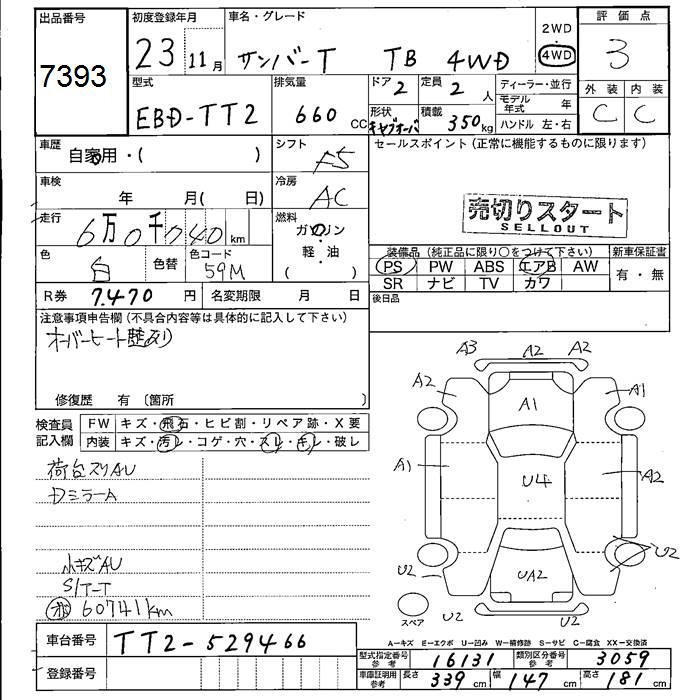 出品番号 初度登録年月 車名・グレード 2WD 評価点
7393 23 11月 サンバーT TB 4WD ・ 4WD 3
型式 排気量 ドア 2 定員 2 人 ディーラー・並行 外装 内装
EBD-TT2 660 CC 形状 キャブオーバ 積載 350kg モデル年式 年 C C
ハンドル 左・右
車歴 自家用・( ) シフト F5 セールスポイント(正常に機能するものに限ります)
車検 年 月( 日) 冷房 AC
売切りスタート
SELLOUT
走行 6万0千740 km 燃料 ガソリン・軽・油 ( )
色 白 色替 色コード 59M 装備品(純正品に限り○をつけて下さい) 新車保証書
PS PW ABS エアB AW 有・無
SR ナビ TV カワ
R券 7.470 円 名変期限 月 日 後日品
注意事項申告欄(不具合内容等は具体的に記入して下さい)
オーバーヒート歴あり
修復歴 有 〔箇所 〕
検査員記入欄 FW キズ・飛石・ヒビ割・リペア跡・X要
内装 キズ・汚レ・コゲ・穴・スレ・キレ・破レ
荷台スリAU
DミラーA
小キズAU
S/T-T
60741km
A3 A2 A2
A2 A1 A1
A1 U4 A2
U2 UA2 U2
スペア U2 U2
A—キズ E—エクボ U—凹み W—補修跡 S—サビ C—腐食 XX—交換済
車台番号 TT2-529466 型式指定番号 参考 16131 類別区分番号 参考 3059
登録番号 車庫証明用 参考 長さ 339 cm 幅 147 cm 高さ 181 cm